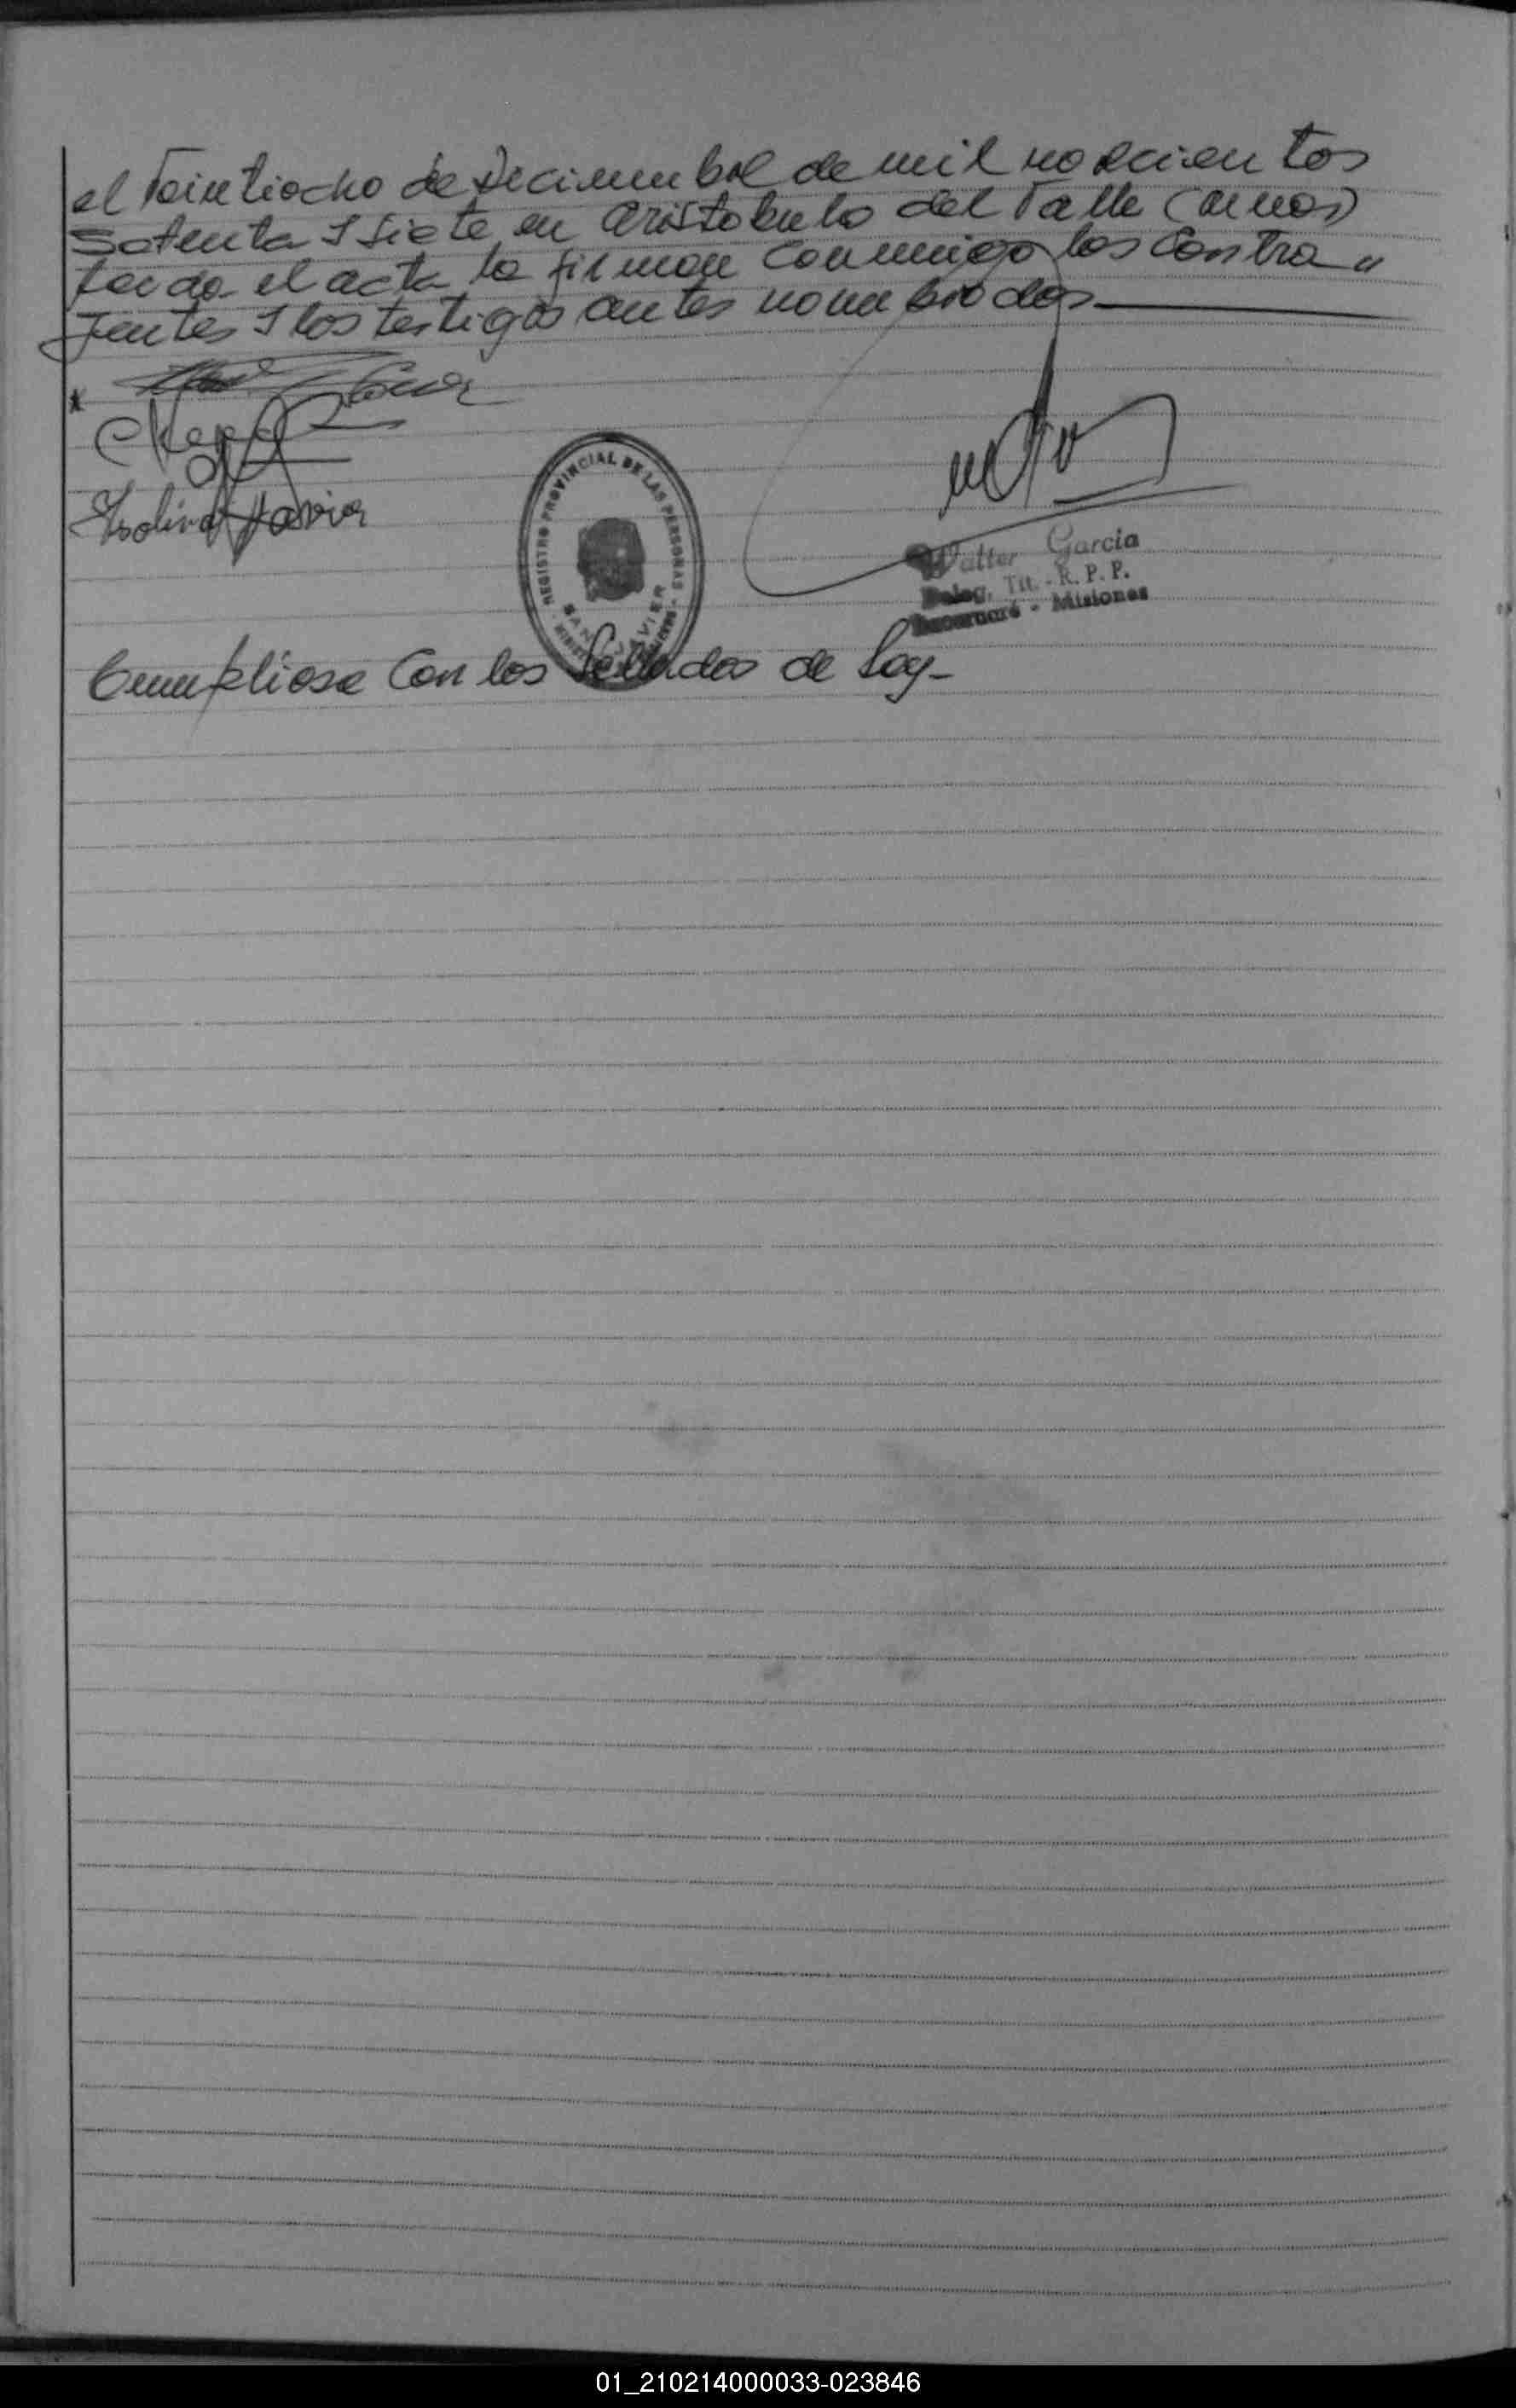 el Veintiocho de Diciembre de mil novecientos
setenta y siete en Aristobulo del Valle (Mnes)
leida el acta la firman conmigo los contra„
yentes y los testigos antes nombrados
Isolina
REGISTRO PROVINCIAL DE LAS PERSONAS
SAN JAVIER
Walter Garcia
Deleg. Tit. - R. P. P.
- Misiones
Cumpliose con los Sellados de Ley-
01_210214000033-023846